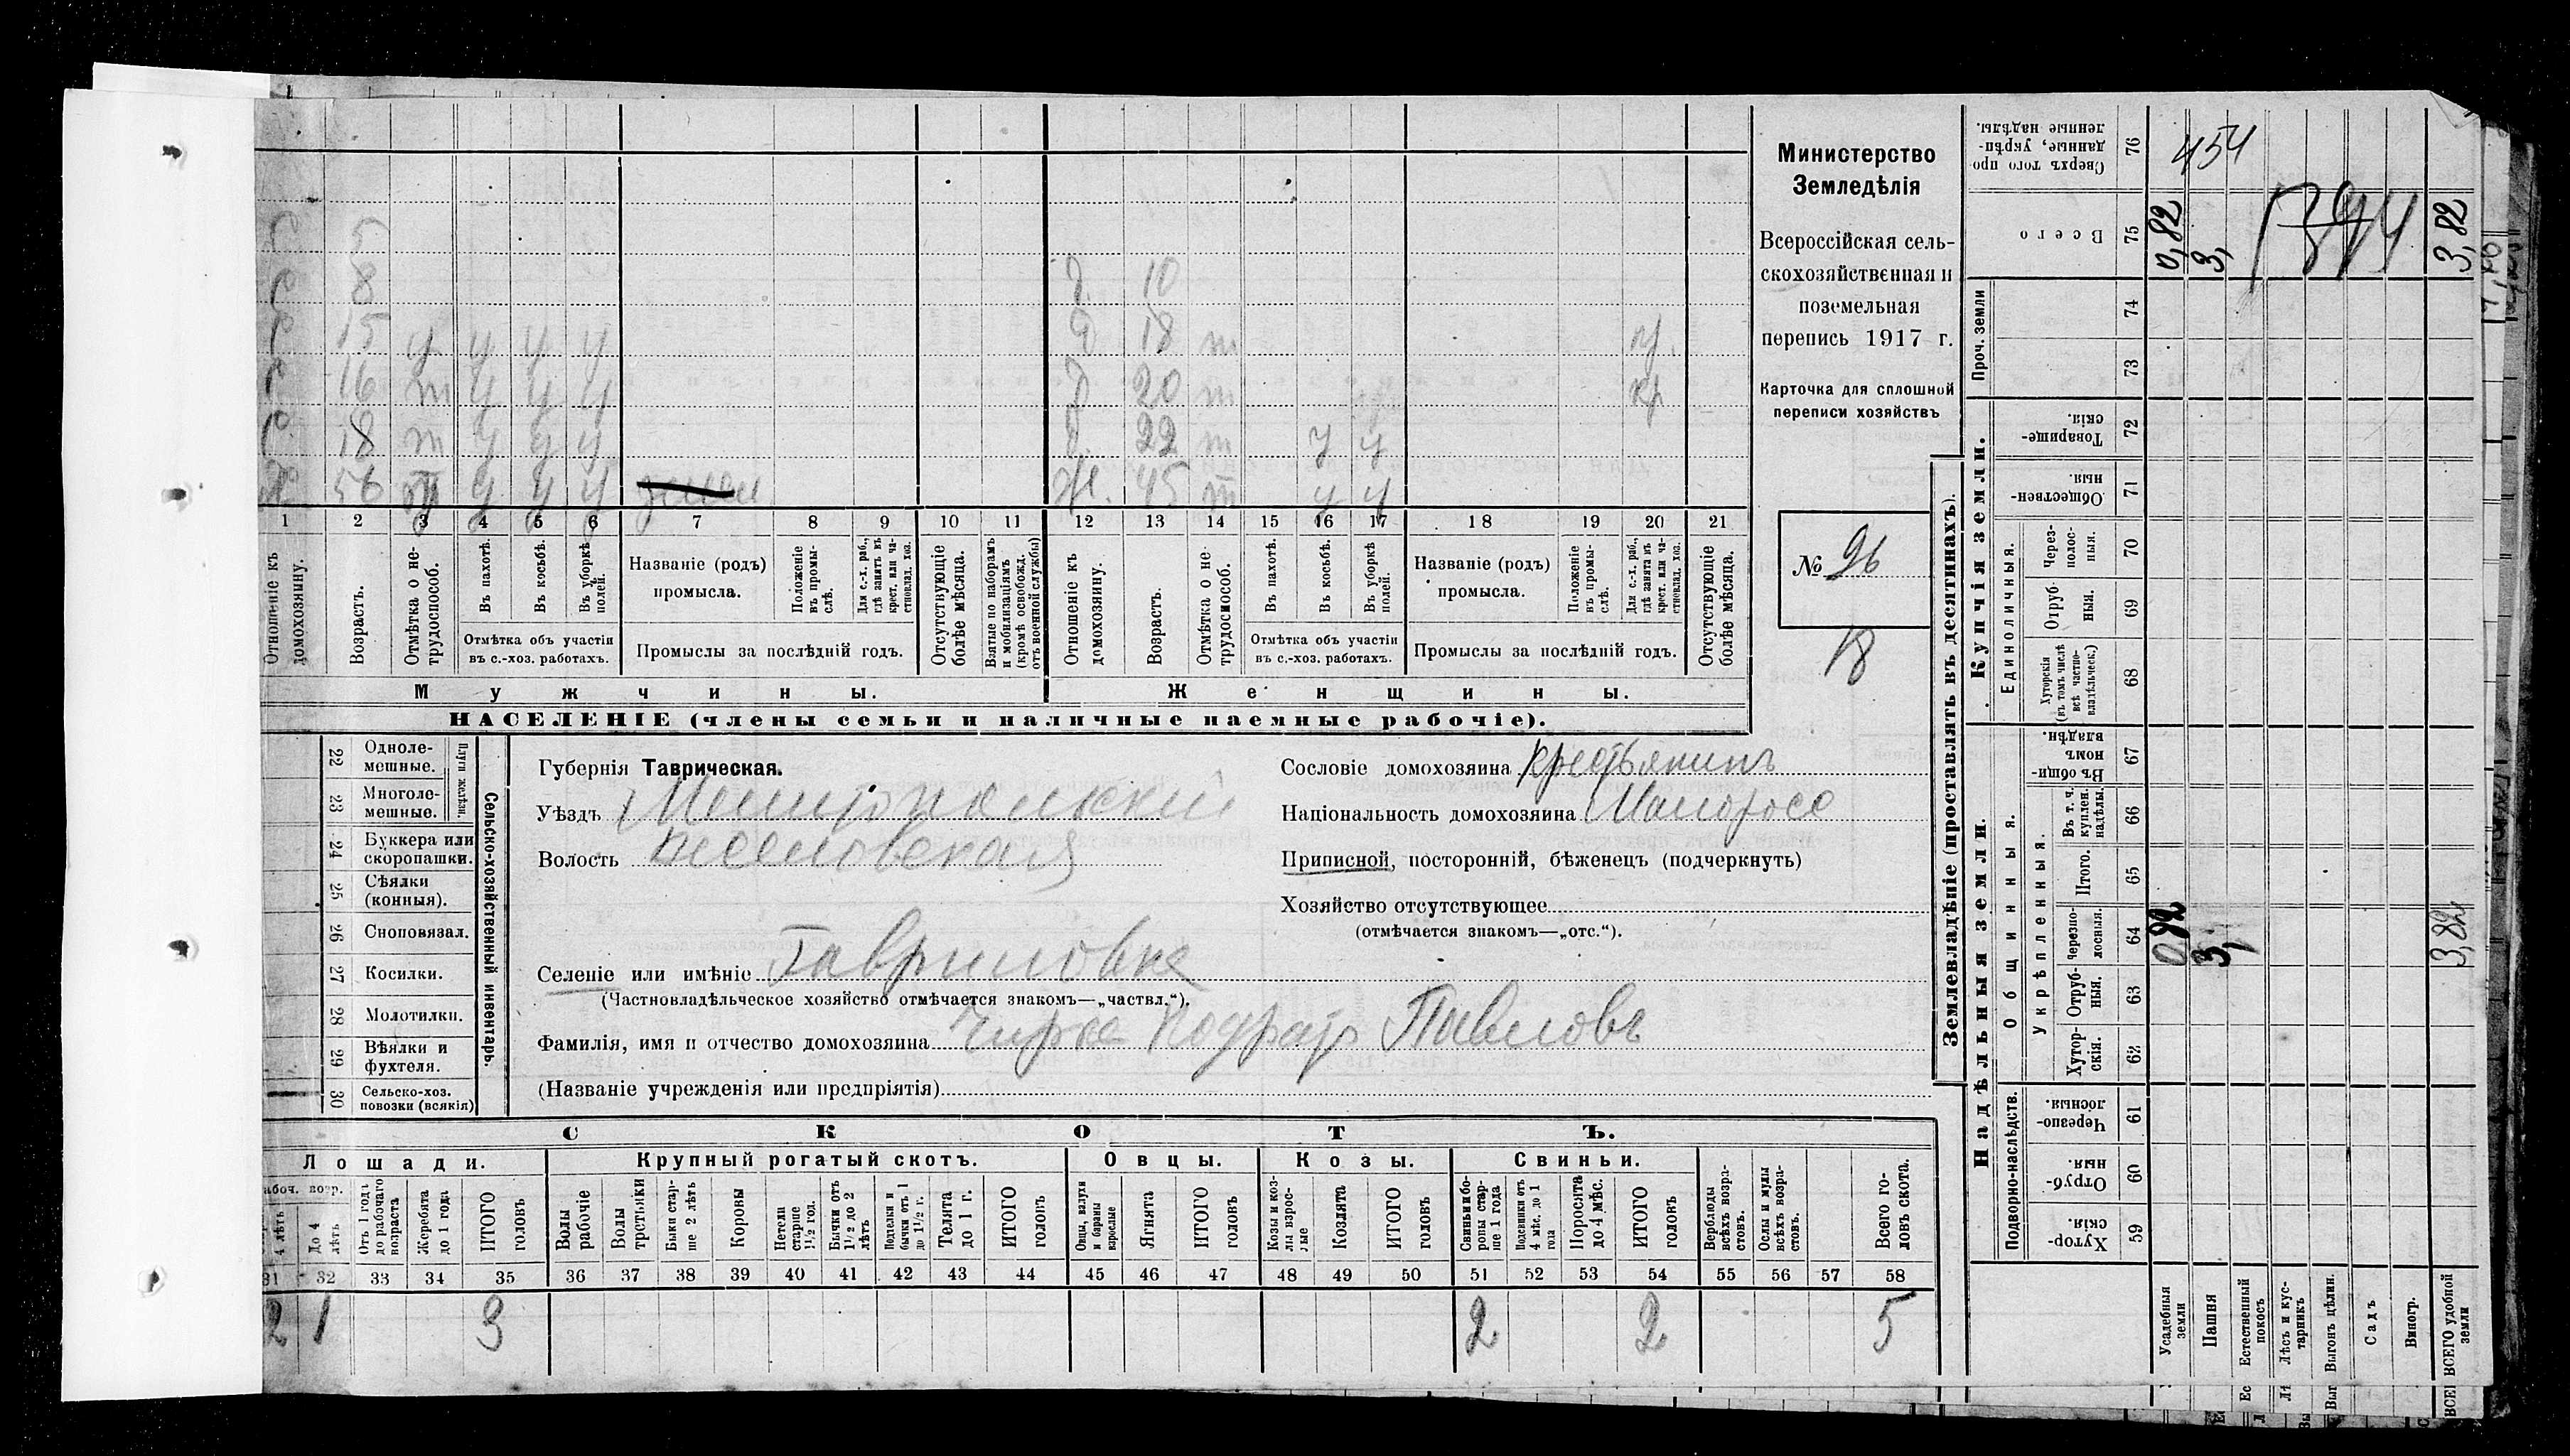 Министерство
Земледѣлія
Всероссійская сель-
скохозяйственная и
поземельная
перепись 1917 г.
Карточка для сплошной
переписи хозяйствъ
№ 96
18
с 5
с 8 д 10
с 15 у у у у д 18 т у.
с 16 т у у у д 20 т кр
с. 18 т у у у д. 22 т у у
Х. 56 т у у у Ж. 45 т у у
1 2 3 4 5 6 7 8 9 10 11 12 13 14 15 16 17 18 19 20 21
Отношеніе къ домохозяину.
Возрастъ.
Отмѣтка о не-трудоспособ.
Въ пахотѣ.
Въ косьбѣ.
Въ уборкѣ полей.
Отмѣтка объ участіи
въ с.-хоз. работахъ.
Названіе (родъ)
промысла.
Положеніе въ промы-слѣ.
Для с.-х. раб., гдѣ занятъ въ крест. или ча-стновлад. хоз.
Промыслы за послѣдній годъ.
Отсутствующіе болѣе мѣсяца.
Взятые по наборамъ и мобилизаціямъ (кромѣ освобожд. отъ военной службы)
Отношеніе къ домохозяину.
Возрастъ.
Отмѣтка о не-трудоспособ.
Въ пахотѣ.
Въ косьбѣ.
Въ уборкѣ полей.
Отмѣтка объ участіи
въ с.-хоз. работахъ.
Названіе (родъ)
промысла.
Положеніе въ промы-слѣ.
Для с.-х. раб., гдѣ занята въ крест. или ча-стновлад. хоз.
Промыслы за послѣдній годъ.
Отсутствующіе болѣе мѣсяца.
Мужчины. Женщины.
НАСЕЛЕНІЕ (члены семьи и наличные наемные рабочіе).
Сельско-хозяйственный инвентарь.
Плуги желѣзн.
22 Одноле-
мешные.
23 Многоле-
мешные.
24 Буккера или
скоропашки.
25 Сѣялки
(конныя).
26 Сноповязал.
27 Косилки.
28 Молотилки.
29 Вѣялки и
фухтеля.
30 Сельско-хоз.
повозки (всякія)
Губернія Таврическая.
Уѣздъ Мелитопольскій
Волость Веселовская
Селеніе или имѣніе Гавриловка
(Частновладѣльческое хозяйство отмѣчается знакомъ—„частвл.“).
Фамилія, имя и отчество домохозяина Чирка Кодратъ Павловъ
(Названіе учрежденія или предпріятія)
Сословіе домохозяина крестьянинъ
Національность домохозяина Малоросс
Приписной, посторонній, бѣженец (подчеркнуть)
Хозяйство отсутствующее
(отмѣчается знакомъ—„отс.“).
СКОТЪ.
Лошади. Крупный рогатый скотъ. Овцы. Козы. Свиньи.
абоч. возр.
4 лѣтъ
До 4 лѣтъ
Отъ 1 года до рабочаго возраста
Жеребята до 1 года
ИТОГО головъ
Волы рабочіе
Волы третьяки
Быки стар-ше 2 лѣтъ
Коровы
Нетели старше 1½ год.
Бычки отъ 1½ до 2 лѣтъ
Подтелки и бычки отъ 1 до 1½ г.
Телята до 1 г.
ИТОГО головъ
Овцы, валухи и бараны взрослые
Ягнята
ИТОГО головъ
Козы и коз-лы взрос-лые
Козлята
ИТОГО головъ
Свиньи и бо-ровы стар-ше 1 года
Подсвинки отъ 4 мѣс. до 1 года
Поросята до 4 мѣс.
ИТОГО головъ
Верблюды всѣхъ возра-стовъ.
Ослы и мулы всѣхъ возра-стовъ.
Всего го-ловъ скота.
31 32 33 34 35 36 37 38 39 40 41 42 43 44 45 46 47 48 49 50 51 52 53 54 55 56 57 58
2 1 3 2 2 5
Землевладѣніе (проставлять въ десятинахъ).
Надѣльныя земли. Купчія земли. Проч. земли
Подворно-наслѣдств. Общинныя. Укрѣпленныя. Единоличныя.
Хутор-скія. 59
Отруб-ныя. 60
Черезпо-лосныя. 61
Хутор-скія. 62
Отруб-ныя. 63
Черезпо-лосныя. 64
Итого. 65
Въ т. ч. куплен. надѣлы. 66
Въ общин-номъ владѣн. 67
Хуторскія (въ томъ числѣ всѣ частно-владѣльческ.) 68
Отруб-ныя. 69
Через-полос-ныя. 70
Обществен-ныя. 71
Товарище-скія. 72
73
74
Всего 75
Сверхъ того про-данные, укрѣп-ленные надѣлы. 76
Усадебныя земли 0,82 0,82
Пашня 3, 3,
Естественный покосъ
Лѣсъ и кус-тарникъ
Выгонъ цѣлин.
Садъ
Виногр.
ВСЕГО удобной земли 3,82 3,82
454